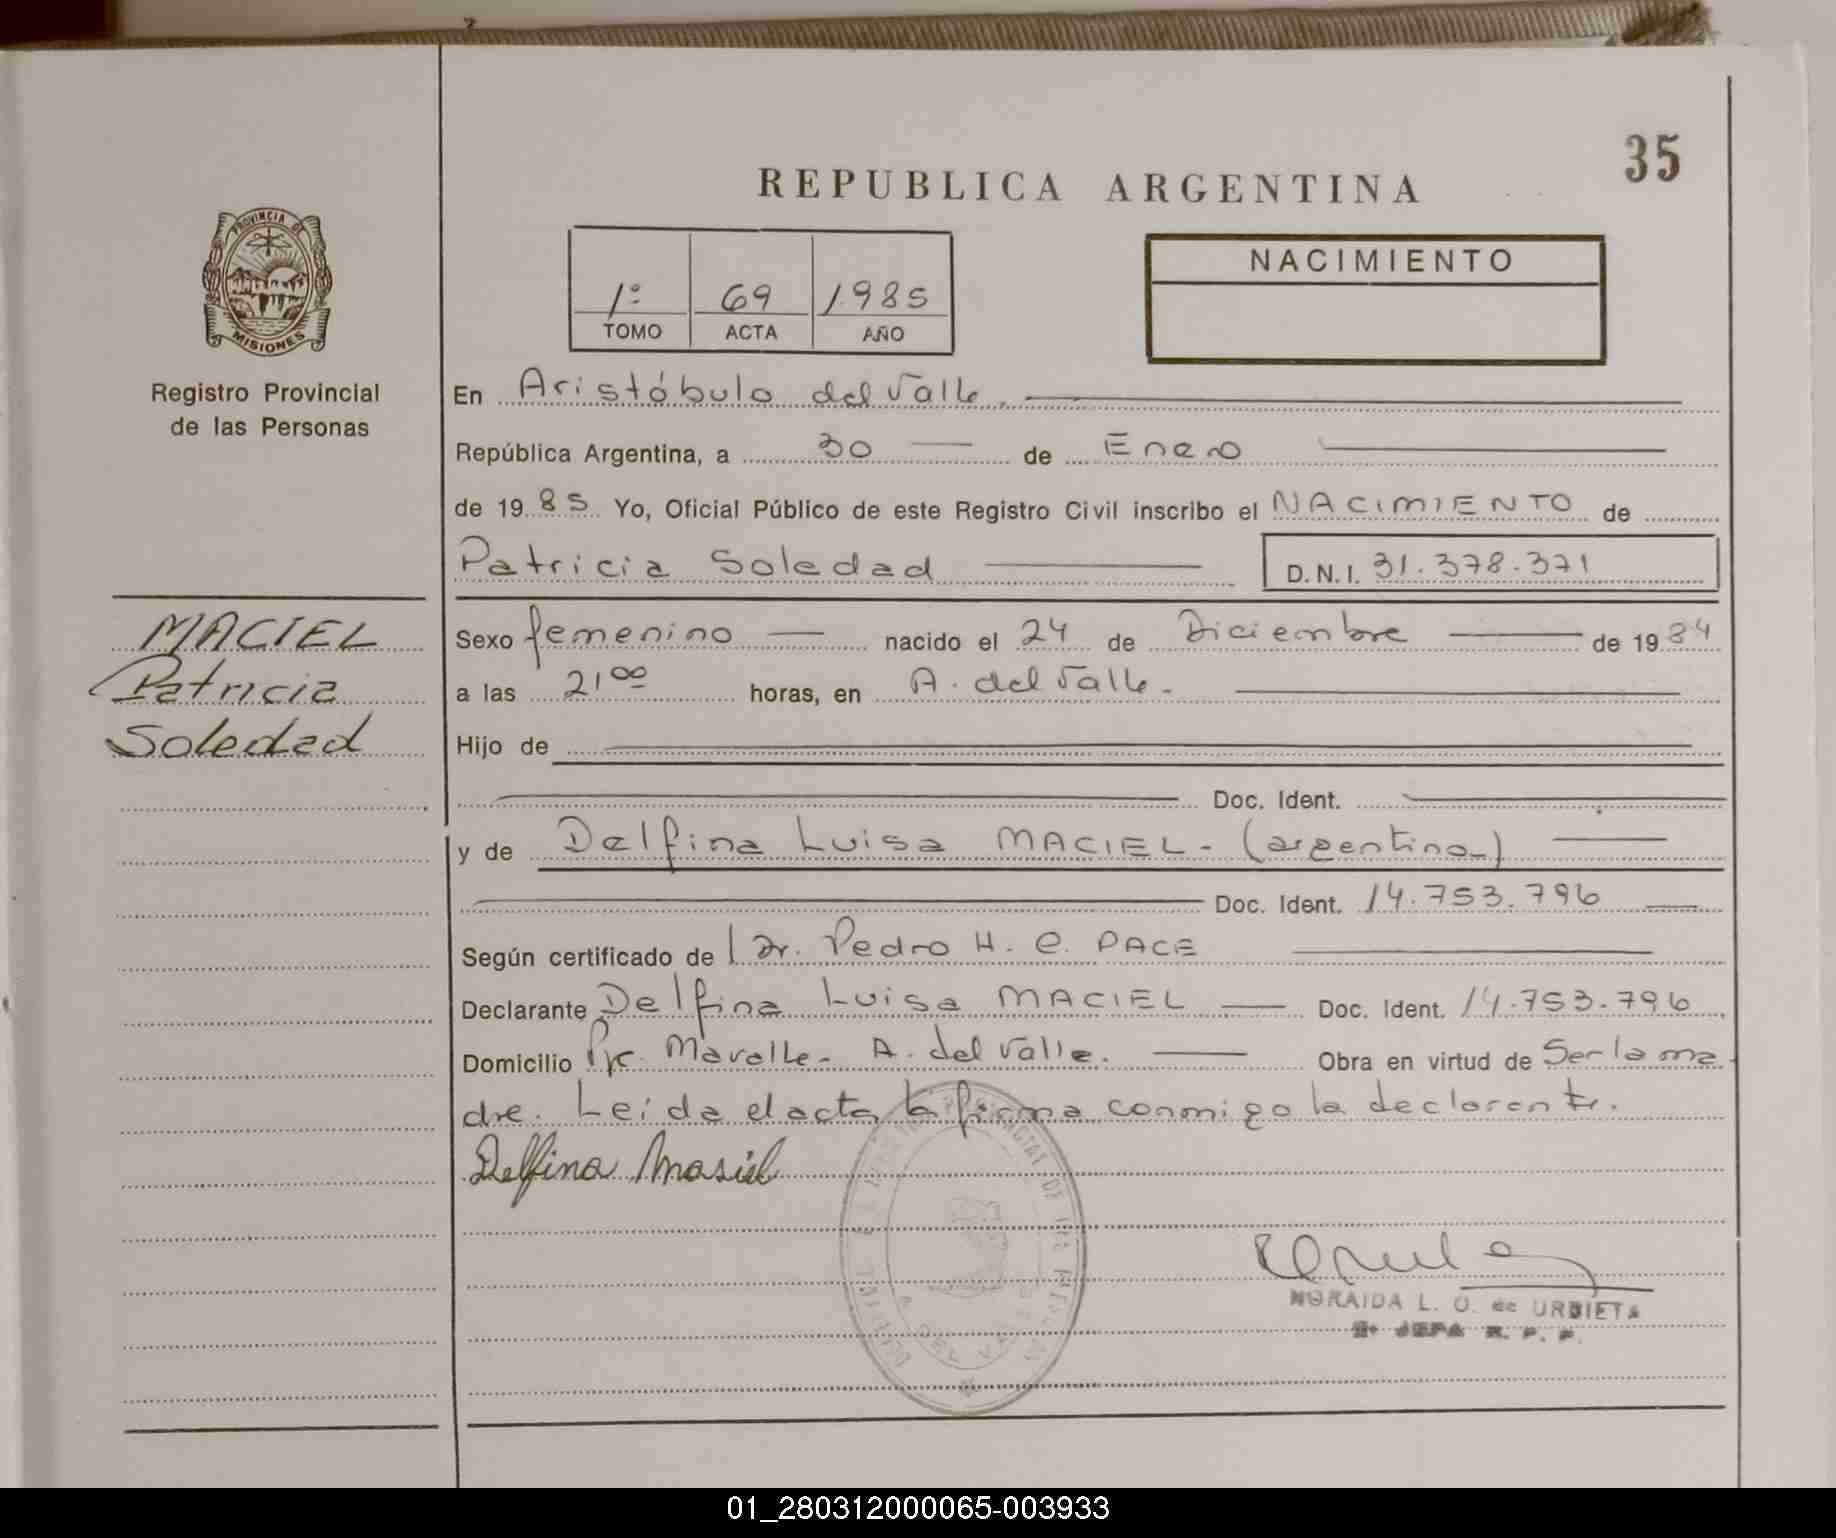 35
REPUBLICA ARGENTINA
PROVINCIA DE
MISIONES
Registro Provincial
de las Personas
1º 69 1985
TOMO ACTA AÑO
NACIMIENTO
En Aristóbulo del Valle.
República Argentina, a 30 de Enero
de 1985 Yo, Oficial Público de este Registro Civil inscribo el NACIMIENTO de
Patricia Soledad D.N.I. 31.378.371
MACIEL
Patricia
Soledad
Sexo femenino nacido el 24 de Diciembre de 1984
a las 21 00 horas, en A. del Valle.
Hijo de
Doc. Ident.
y de Delfina Luisa MACIEL - (argentina)
Doc. Ident. 14.753.796
Según certificado de Dr. Pedro H. C. PACE
Declarante Delfina Luisa MACIEL Doc. Ident. 14.753.796
Domicilio A. del Valle. Obra en virtud de Ser la ma
dre. Leída el acta, la firma conmigo la declarante.
Delfina Masiel
NORAIDA L. O. de URBIETA
2º JEFA R. P. P.
01_280312000065-003933